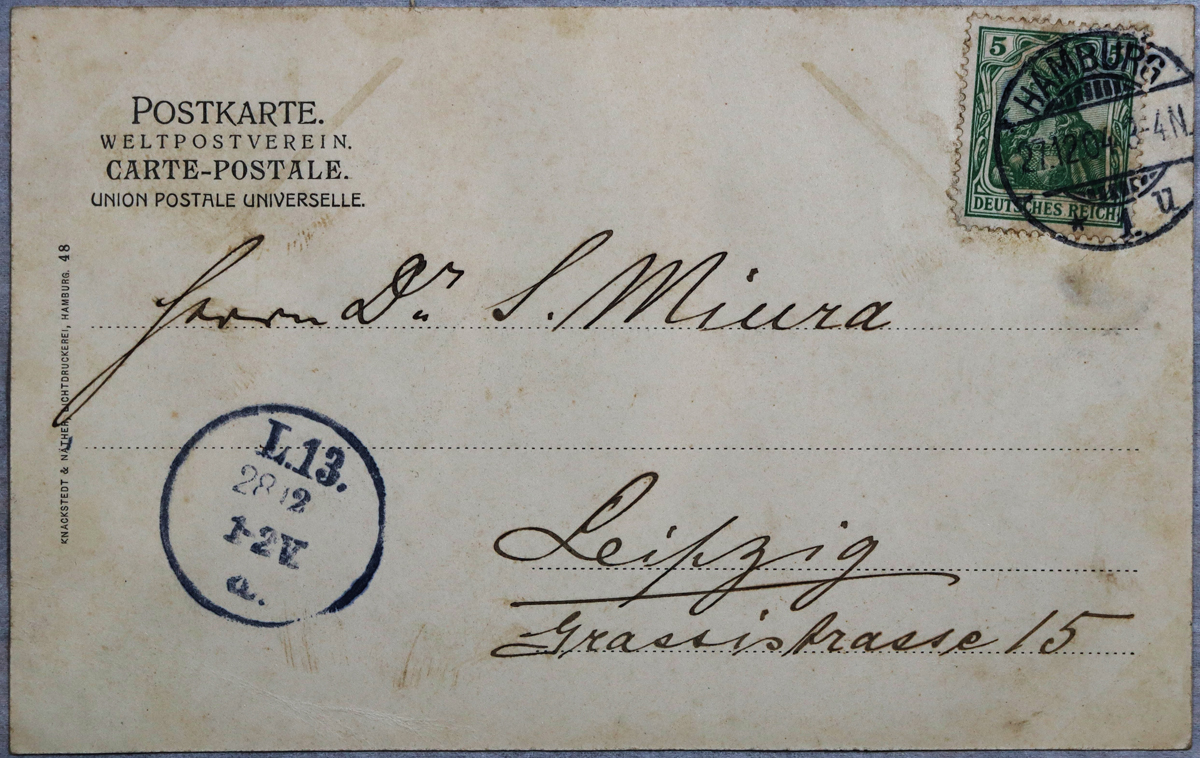 POSTKARTE.
WELTPOSTVEREIN.
CARTE-POSTALE.
UNION POSTALE UNIVERSELLE.
5
DEUTSCHES REICH
HAMBURG
27.12.04. 3-4N.
* 1. u
Herrn Dr. S. Miura
Leipzig
Grassistrasse 15
L.13.
28 12
1-2V.
a.
KNACKSTEDT & NÄTHER, LICHTDRUCKEREI, HAMBURG. 48